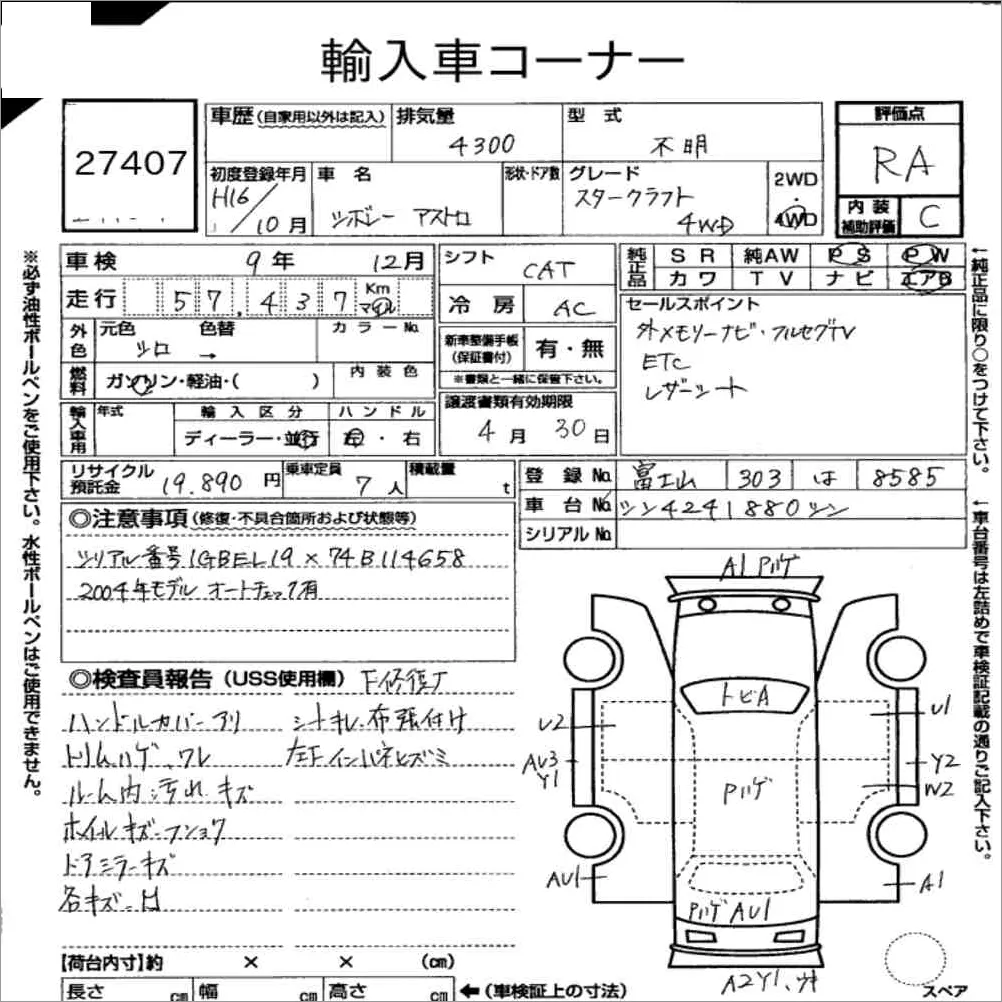 輸入車コーナー
27407
車歴(自家用以外は記入)
排気量 4300
型式 不明
評価点 RA
初度登録年月 H16/10月
車名 シボレー アストロ
形状・ドア数
グレード スタークラフト 4WD
2WD・4WD
内装補助評価 C
車検 9年 12月
シフト CAT
純正品 SR 純AW PS PW
カワ TV ナビ エアB
走行 57,437 Km マイル
冷房 AC
セールスポイント
外メモリーナビ・フルセグTV
ETC
レザーシート
外色 元色 シロ → 色替 カラーNo.
新車整備手帳(保証書付) 有・無
※書類と一緒に保管下さい。
燃料 ガソリン・軽油・( )
内装色
輸入車用 年式 輸入区分 ハンドル
ディーラー・並行 左・右
譲渡書類有効期限
4月 30日
リサイクル預託金 19.890円
乗車定員 7人
積載量 t
登録No. 富士山 303 は 8585
車台No. シン4241880シン
シリアルNo.
◎注意事項(修復・不具合箇所および状態等)
シリアル番号1GBEL19×74B114658
2004年モデル オートチェック有
◎検査員報告(USS使用欄) 下修復す
ハンドルカバーアリ
シートキレ、布張付け
トリムハゲ、ワレ
左F インパネヒズミ
ルーム内汚れ、キズ
ホイルキズ-フショク
ドアミラーキズ
各キズ-凹
【荷台内寸】約 × × (㎝)
長さ ㎝ 幅 ㎝ 高さ ㎝ ←(車検証上の寸法)
A1 Pハゲ
トビA
U2
U1
AU3
Y1
Y2
W2
Pハゲ
AU1
A1
PハゲAU1
A2Y1.
スペア
※必ず油性ボールペンをご使用下さい。水性ボールペンはご使用できません。
←純正品に限り○をつけて下さい。
←車台番号は左詰めで車検証記載の通りご記入下さい。